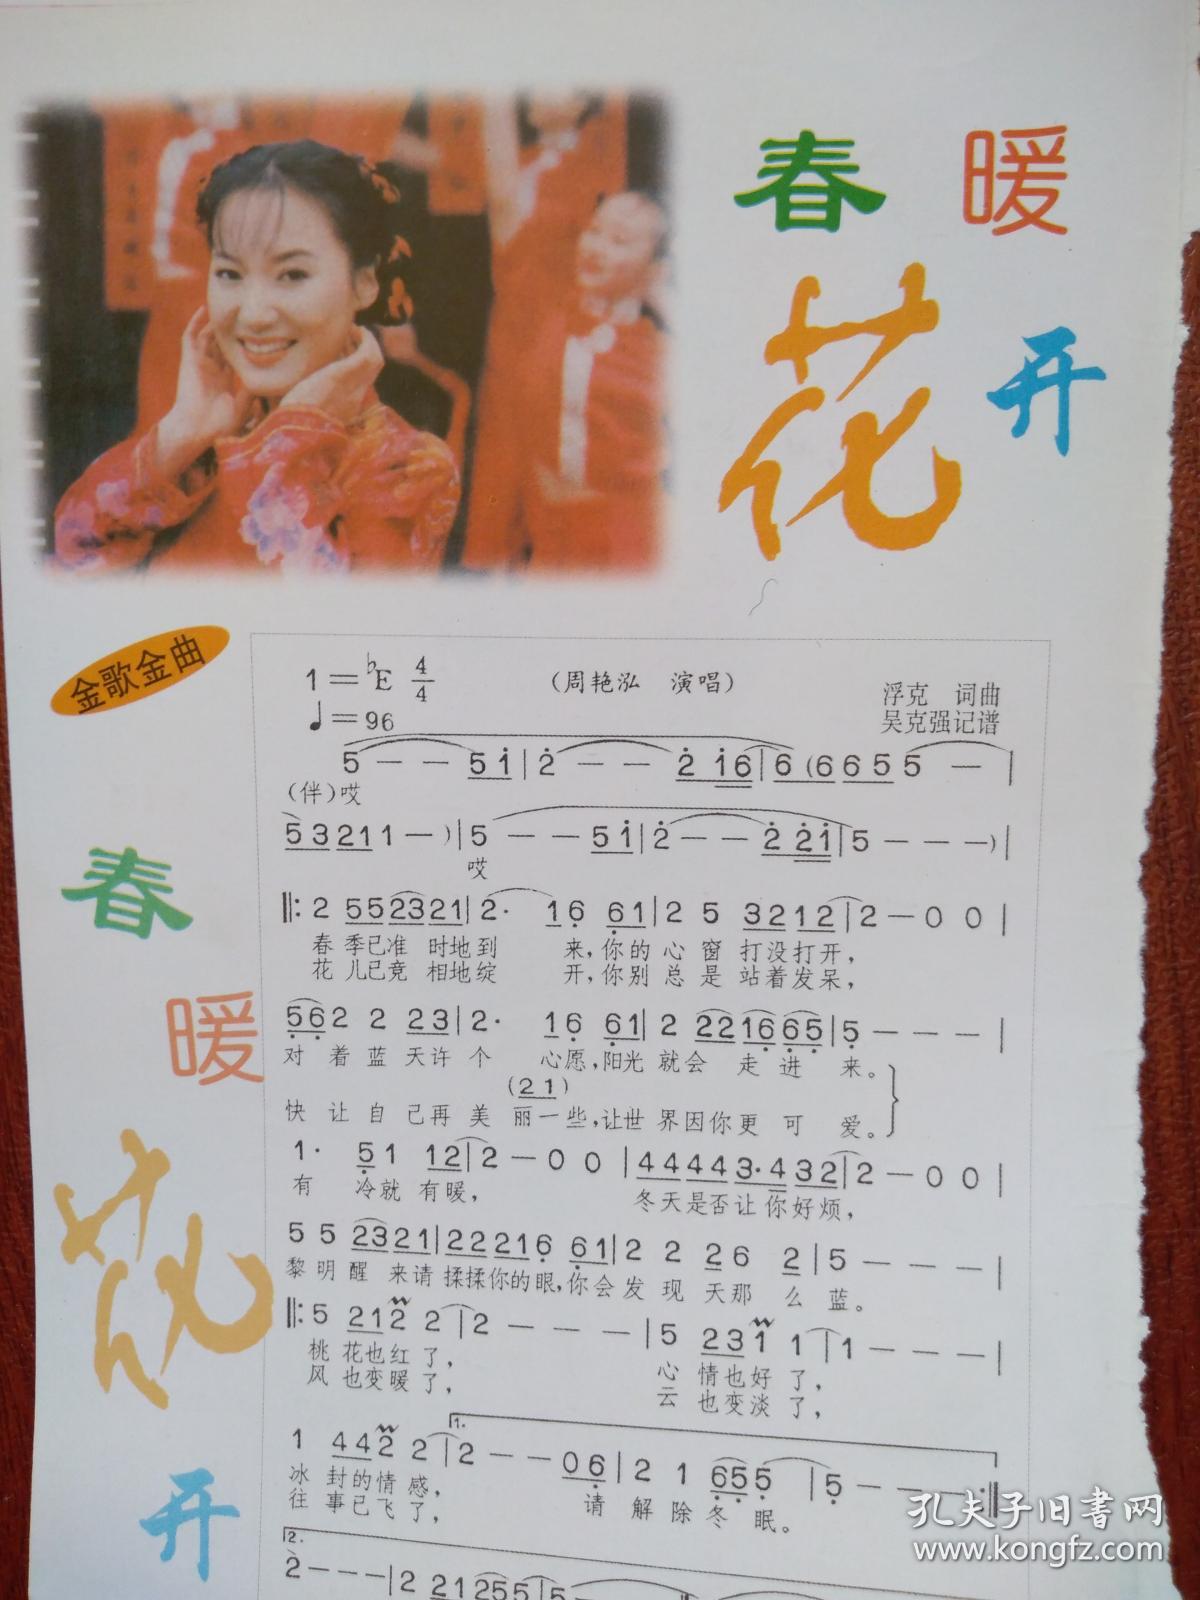 春 暖
花 开
金歌金曲
春
暖
花
开
1=♭E 4/4
(周艳泓 演唱)
浮克 词曲
♩=96
吴克强记谱
5 - - 5 i | 2 - - 2 i 6 | 6 (6 6 5 5 5 - |
(伴)哎
5 3 2 1 1 1 - ) | 5 - - 5 i | 2 - - 2 2 i | 5 - - - ) |
哎
‖: 2 5 5 2 3 2 1 | 2· 1 6 6 1 | 2 5 3 2 1 2 | 2 - 0 0 |
春 季已准 时地到 来,你的心 窗 打没打开,
花 儿已竞 相地绽 开,你别总 是 站着发呆,
5 6 2 2 2 3 | 2· 1 6 6 1 | 2 2 2 1 6 6 5 | 5 - - - |
对 着 蓝 天许 个 心愿,阳光 就会 走 进 来。
(2 1)
快 让 自 己再 美 丽一些,让世 界因你更 可 爱。
1· 5 1 1 2 | 2 - 0 0 | 4 4 4 4 3·4 3 2 | 2 - 0 0 |
有 冷就 有暖, 冬天是否让你好烦,
5 5 2 3 2 1 | 2 2 2 1 6 6 1 | 2 2 2 6 2 | 5 - - - |
黎 明 醒 来请 揉揉你的眼,你会 发 现 天那 么 蓝。
‖: 5 2 1 2 2 | 2 - - - | 5 2 3 1 1 | 1 - - - |
桃 花也红 了, 心 情也好 了,
风 也变暖 了, 云 也变淡 了,
1.
1 4 4 2 2 | 2 - - 0 6 | 2 1 6 5 5 | 5 - - - :‖
冰 封的情 感, 请 解 除 冬 眠。
往 事已飞 了,
2.
2 - - - | 2 2 1 2 5 5 | 5 -
孔夫子旧书网
www.kongfz.com